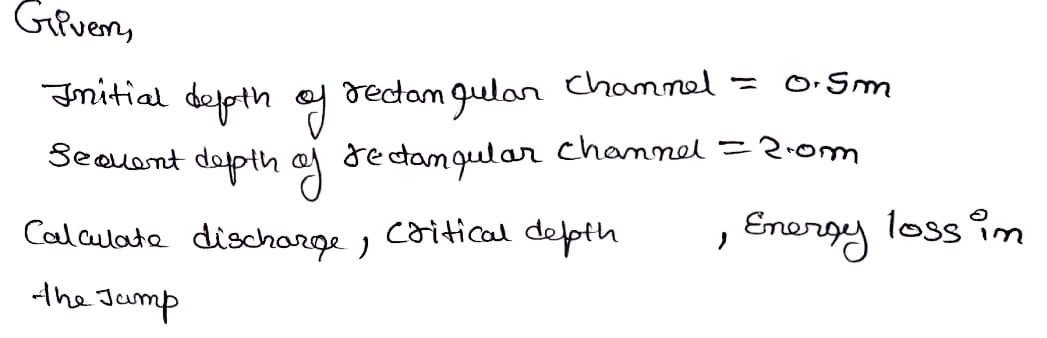 Given,
Initial depth of rectangular channel = 0.5m
Sequent depth of rectangular channel = 2.0m
Calculate discharge, critical depth , Energy loss in
the Jump